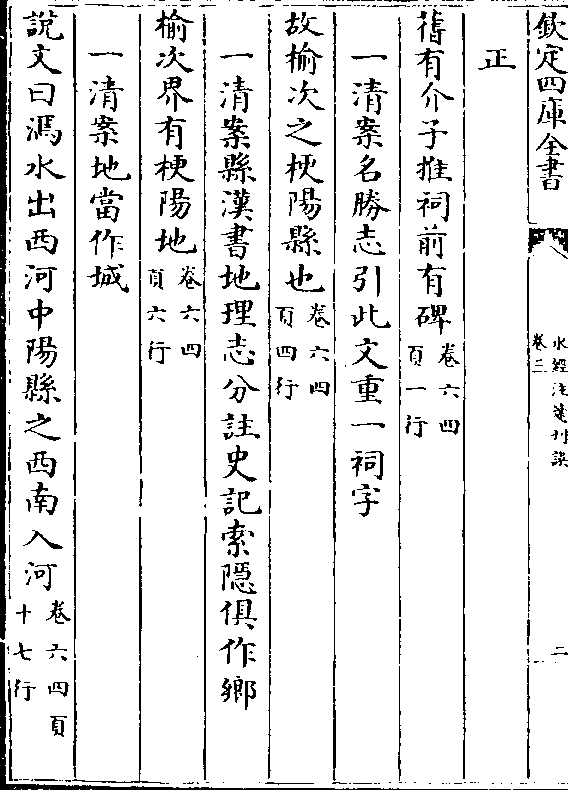 欽定四庫全書
水經注箋刊誤
卷三
二
正
舊有介子推祠前有碑卷六四頁一行
一清案名勝志引此文重一祠字
故榆次之梗陽縣也卷六四頁四行
一清案縣漢書地理志分註史記索隱俱作鄉
榆次界有梗陽地卷六四頁六行
一清案地當作城
說文曰漹水出西河中陽縣之西南入河卷六四頁十七行